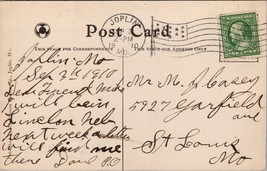 JOPLIN
2-PM
MO.
Post Card
THIS SPACE FOR CORRESPONDENCE
THIS SIDE FOR ADDRESS ONLY
Joplin Mo
Sep 2 1910
Dear
I
will being
Lincoln Neb
next week a letter
will find me
there Dad
Mr M J Casey
5927 Garfield
ave
St Louis
Mo